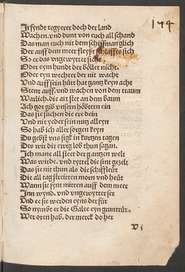 144
doch der land
Wachen vnd dunt von euch all schand
Das man euch nit dem schiffman glich
Der auff dem mer schlaffes sich
So er das vngewytter
Oder eyn hundt der böllet nicht
Oder eyn wechter der nit wacht
Vnd auff syn hüt hat gantz keyn acht
Stent auff vnd wachen von dem traum
Warlich die axt stat an dem baum
Ach got gib vnsern höubtern ein
Das sie suchen die ere dein
Vnd nit yeder sin nutz alleyn
So hab ich aller sorgen keyn
Du gebst vns sig in kurtzen tagen
Des wir dir ewig lob thun sagen
Ich man all stett der gantzen welt
Was würd vnd tyttel die sint gezelt
Das sie nit thun als die schiffleüt
Die all tag stritten vnd heüt
Wann sie synt mitten auff dem meer
Inn wind vnd vngewytter ser
Vnd ee sie werden eyns der für
So nymbt er die Galee eyn
Wer oren hab der merck vnd hör